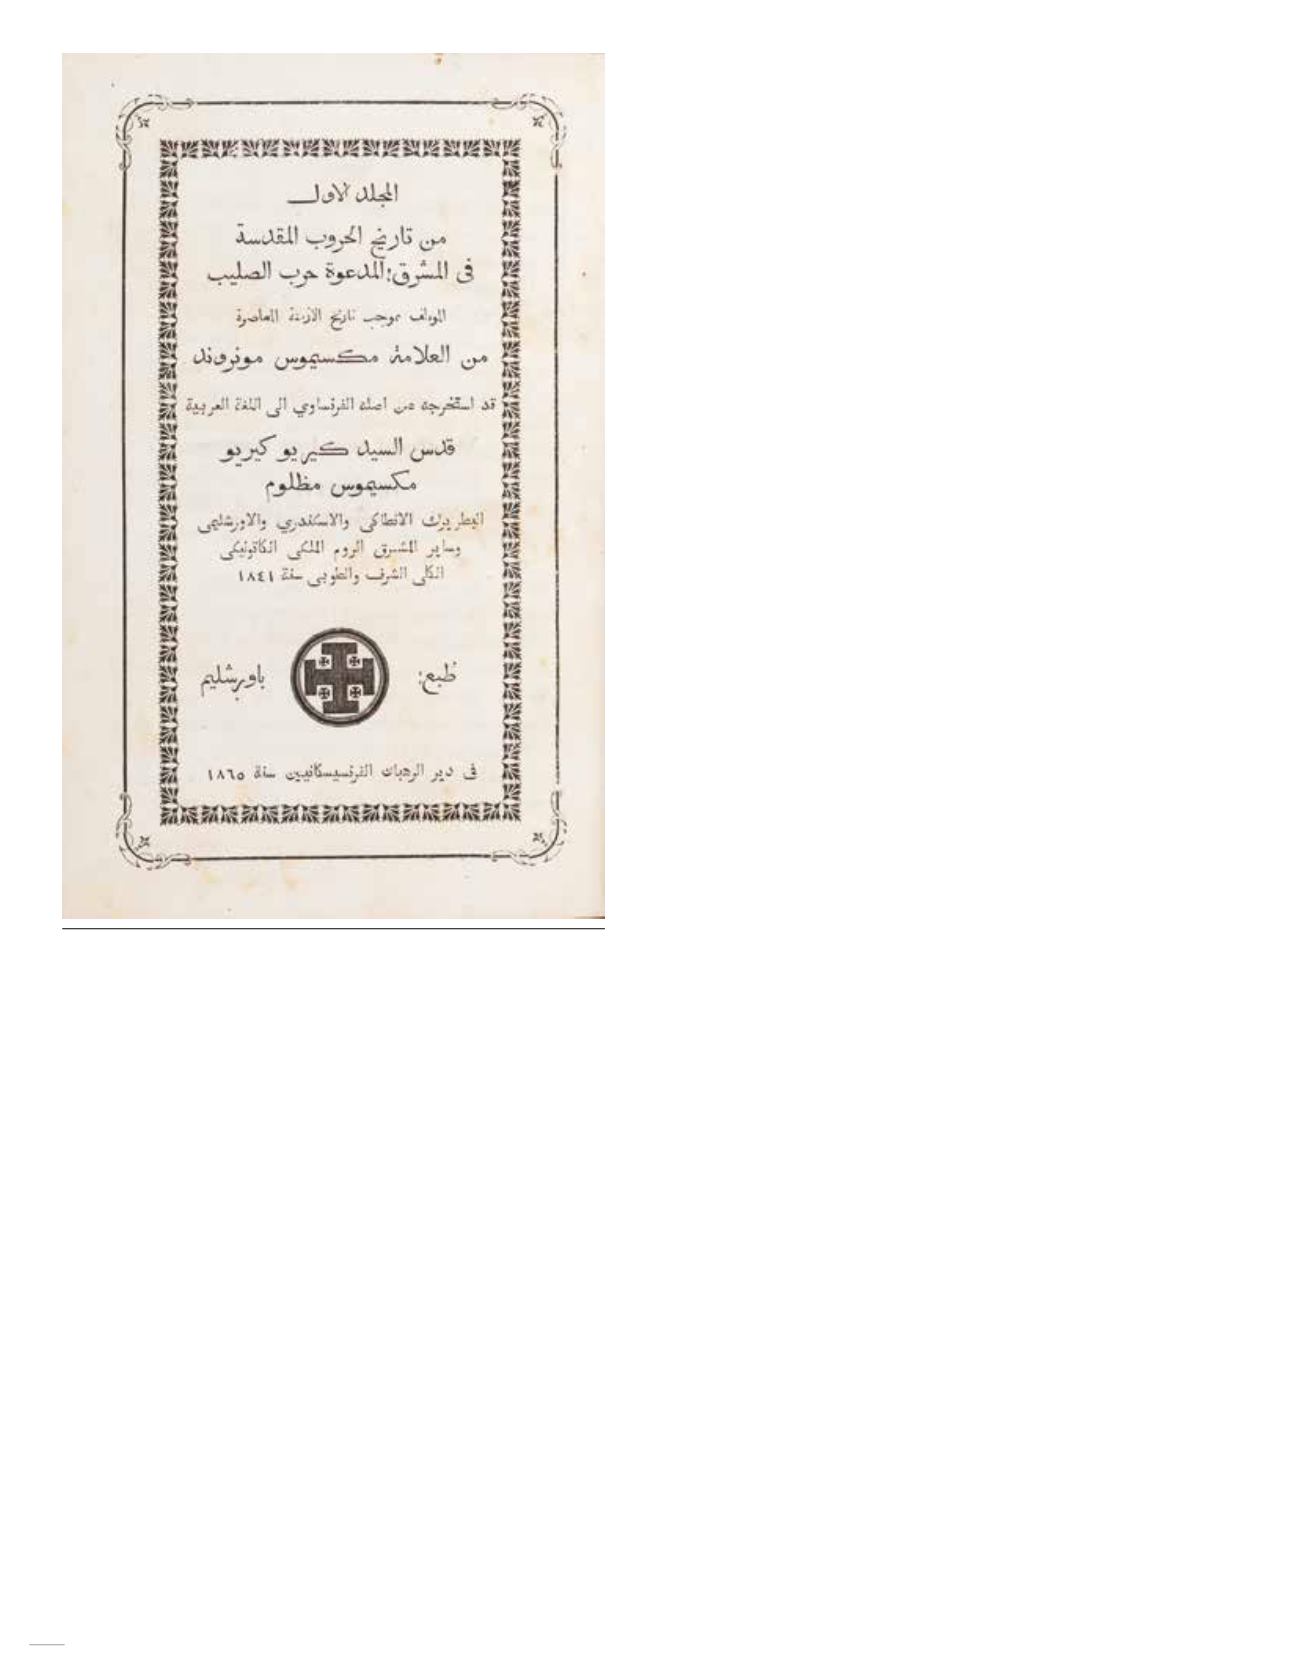 المجلد الاول
من تاريخ الحروب المقدسة
فى المشرق: المدعوة حرب الصليب
المولف بموجب تاريخ الازمنة المعاصرة
من العلامة مكسيموس مونروند
قد استخرجه من اصله الفرنساوي الى اللغة العربية
قدس السيد كيريو كيريو
مكسيموس مظلوم
البطريرك الانطاكى والاسكندري والاورشليمى
وساير المشرق الروم الملكى الكاتوليكى
الكلى الشرف والطوبى سنة ١٨٤١
طبع: باورشليم
فى دير الرهبان الفرنسيسكانيين سنة ١٨٦٥